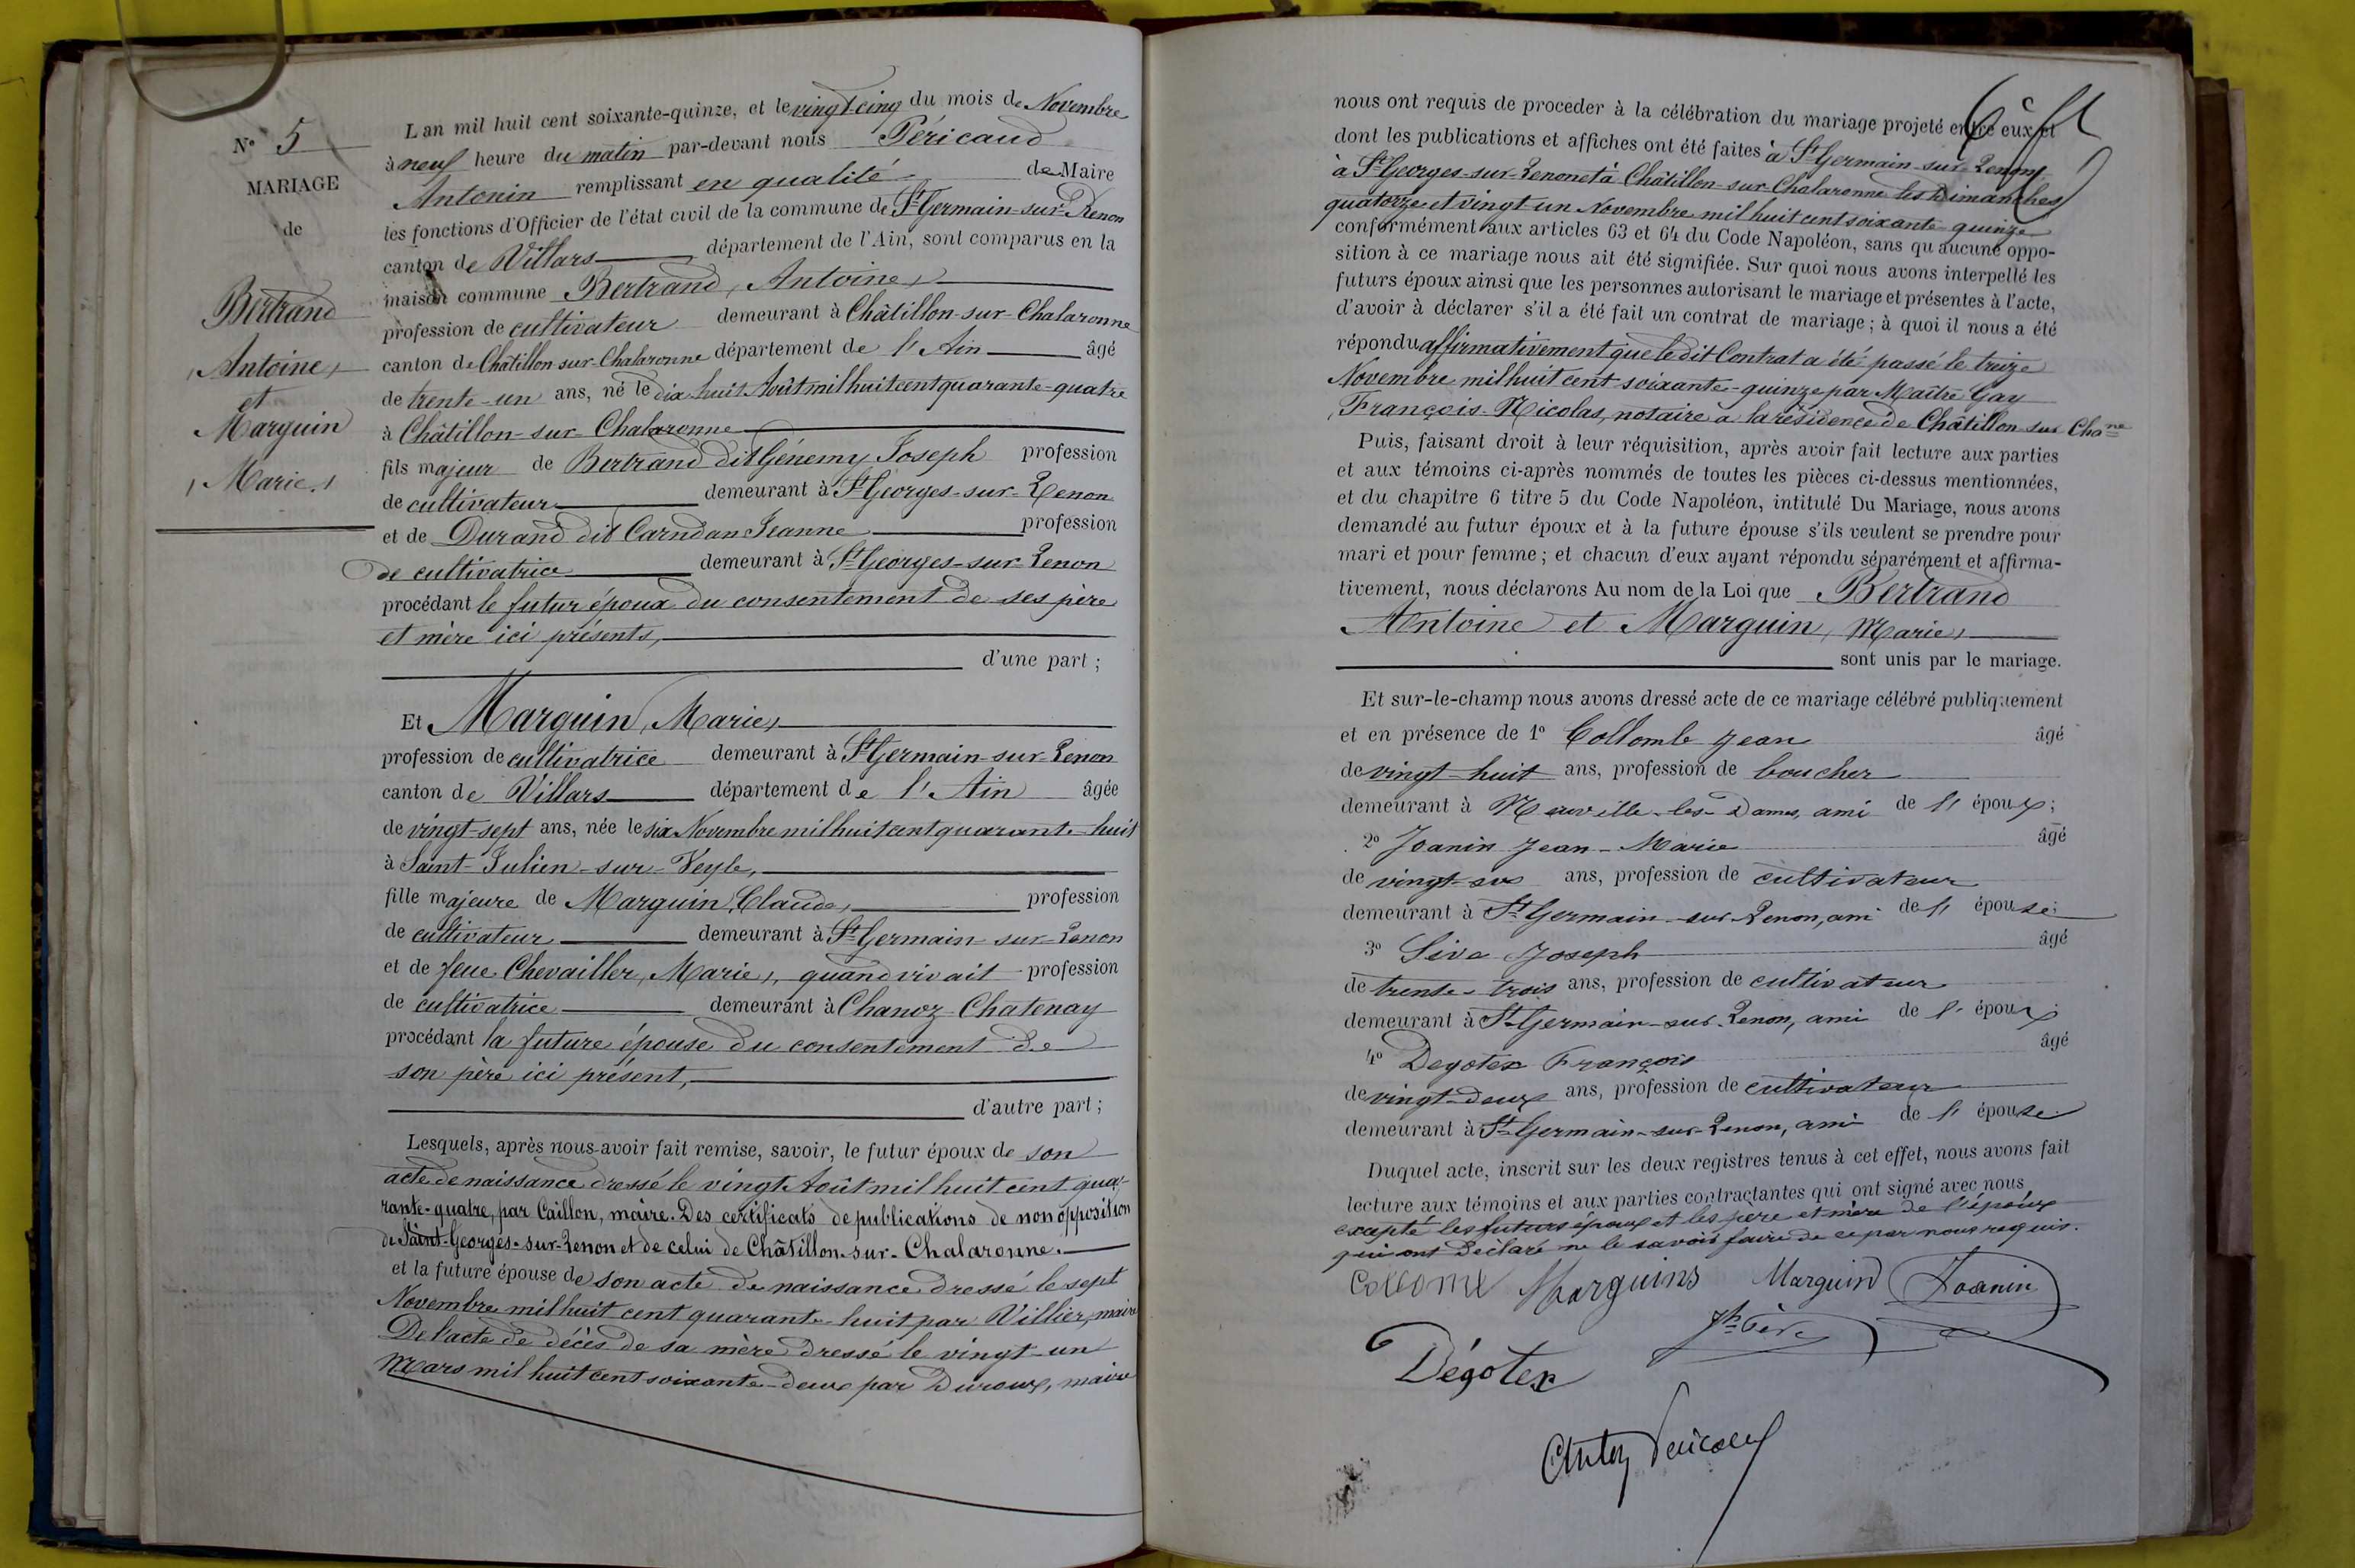 N° 5
MARIAGE
de
Bertrand
Antoine
et
Marguin
Marie
L an mil huit cent soixante-quinze, et le vingt cinq du mois de Novembre
à neuf heure du matin par-devant nous Péricaud
Antonin remplissant en qualité de Maire
les fonctions d'Officier de l'état civil de la commune de St Germain-sur-Renon
canton de Villars département de l'Ain, sont comparus en la
maison commune Bertrand, Antoine,
profession de cultivateur demeurant à Châtillon-sur-Chalaronne
canton de Châtillon-sur-Chalaronne département de l'Ain âgé
de trente-un ans, né le dix huit Août mil huit cent quarante-quatre
à Châtillon-sur-Chalaronne
fils majeur de Bertrand dit Génemy Joseph profession
de cultivateur demeurant à St Georges-sur-Renon
et de Durand dit Carndan Jeanne profession
de cultivatrice demeurant à St Georges-sur-Renon
procédant le futur époux du consentement de ses père
et mère ici présents,
d'une part ;
Et Marguin, Marie,
profession de cultivatrice demeurant à St Germain-sur-Renon
canton de Villars département de l'Ain âgée
de vingt-sept ans, née le six Novembre mil huit cent quarante-huit
à Saint-Julien-sur-Veyle,
fille majeure de Marguin, Claude, profession
de cultivateur demeurant à St Germain-sur-Renon
et de feue Chevailler, Marie, quand vivait profession
de cultivatrice demeurant à Chanoz-Chatenay
procédant la future épouse du consentement de
son père ici présent,
d'autre part ;
Lesquels, après nous avoir fait remise, savoir, le futur époux de son
acte de naissance dressé le vingt Août mil huit cent qua-
rante-quatre, par Caillon, maire. Des certificats de publications de non opposition
de Saint-Georges-sur-Renon et de celui de Châtillon-sur-Chalaronne.
et la future épouse de son acte de naissance dressé le sept
Novembre mil huit cent quarante-huit par Villier, maire
De l'acte de décès de sa mère dressé le vingt-un
Mars mil huit cent soixante-deux par Duroux, maire
nous ont requis de proceder à la célébration du mariage projeté entre eux et
dont les publications et affiches ont été faites à St Germain-sur-Renon
à St Georges-sur-Renon et à Châtillon-sur-Chalaronne les Dimanches
quatorze et vingt un Novembre mil huit cent soixante-quinze
conformément aux articles 63 et 64 du Code Napoléon, sans qu'aucune oppo-
sition à ce mariage nous ait été signifiée. Sur quoi nous avons interpellé les
futurs époux ainsi que les personnes autorisant le mariage et présentes à l'acte,
d'avoir à déclarer s'il a été fait un contrat de mariage ; à quoi il nous a été
répondu affirmativement que le dit Contrat a été passé le treize
Novembre mil huit cent soixante-quinze par Maître Gay
François-Nicolas, notaire à la résidence de Châtillon sur Chane
Puis, faisant droit à leur réquisition, après avoir fait lecture aux parties
et aux témoins ci-après nommés de toutes les pièces ci-dessus mentionnées,
et du chapitre 6 titre 5 du Code Napoléon, intitulé Du Mariage, nous avons
demandé au futur époux et à la future épouse s'ils veulent se prendre pour
mari et pour femme ; et chacun d'eux ayant répondu séparément et affirma-
tivement, nous déclarons Au nom de la Loi que Bertrand
Antoine et Marguin, Marie,
sont unis par le mariage.
Et sur-le-champ nous avons dressé acte de ce mariage célébré publiquement
et en présence de 1° Collomb Jean âgé
de vingt-huit ans, profession de boucher
demeurant à Neuville-les-Dames, ami de l' époux ;
2° Joanin Jean-Marie âgé
de vingt-six ans, profession de cultivateur
demeurant à St Germain-sur-Renon, ami de l' épouse ;
3° Sève Joseph âgé
de trente-trois ans, profession de cultivateur
demeurant à St Germain-sur-Renon, ami de l' époux ;
4° Degotex François âgé
de vingt-deux ans, profession de cultivateur
demeurant à St Germain-sur-Renon, ami de l' épouse
Duquel acte, inscrit sur les deux registres tenus à cet effet, nous avons fait
lecture aux témoins et aux parties contractantes qui ont signé avec nous
excepté les futurs époux et les père et mère de l'époux
qui ont déclaré ne le savoir faire de ce par nous requis.
Collomb Marguins Marguin Joanin
Jh Sève
Dégotex